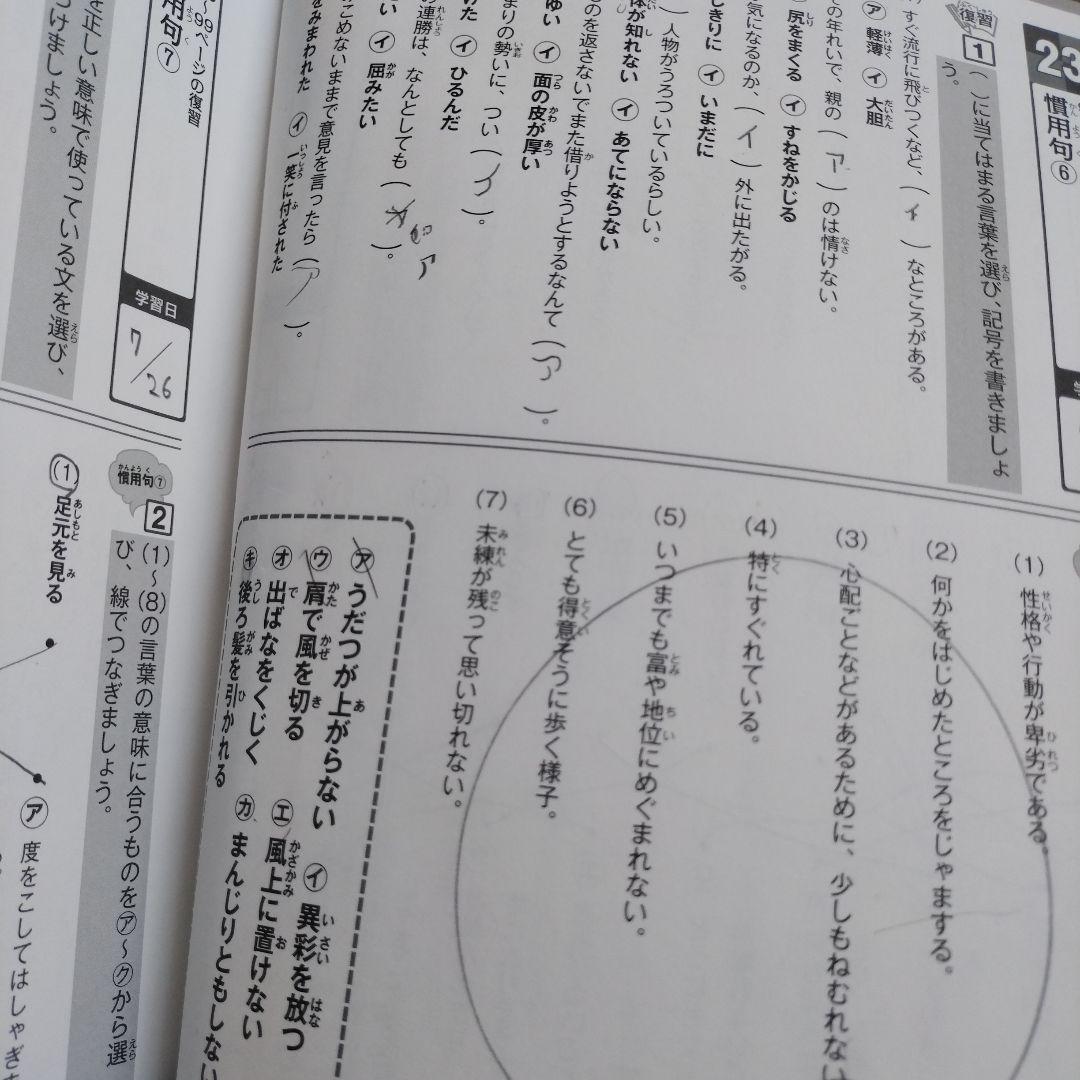 23
慣用句⑥
復習
1
( )に当てはまる言葉を選び、記号を書きましょ
う。
すぐ流行に飛びつくなど、(イ)なところがある。
㋐ 軽薄 ㋑ 大胆
の年れいで、親の(ア)のは情けない。
㋐ 尻をまくる ㋑ すねをかじる
気になるのか、(イ)外に出たがる。
しきりに ㋑ いまだに
)人物がうろついているらしい。
体が知れない ㋑ あてにならない
のを返さないでまた借りようとするなんて(ア)。
ゆい ㋑ 面の皮が厚い
まりの勢いに、つい( )。
けた ㋑ ひるんだ
の連勝は、なんとしても( )。
ア
い ㋑ 屈みたい
こめないままで意見を言ったら(ア)。
をみまわれた ㋑ 一笑に付された
(1) 性格や行動が卑劣である。
(2) 何かをはじめたところをじゃまする。
(3) 心配ごとなどがあるために、少しもねむれない
(4) 特にすぐれている。
(5) いつまでも富や地位にめぐまれない。
(6) とても得意そうに歩く様子。
(7) 未練が残って思い切れない。
㋐ うだつが上がらない ㋑ 異彩を放つ
㋒ 肩で風を切る ㋓ 風上に置けない
㋔ 出ばなをくじく ㋕ まんじりともしない
㋖ 後ろ髪を引かれる
99ページの復習
用句⑦
学習日
7/26
を正しい意味で使っている文を選び、
けましょう。
慣用句⑦
2
(1)~(8)の言葉の意味に合うものを㋐~㋗から選
び、線でつなぎましょう。
(1) 足元を見る
㋐ 度をこしてはしゃぎ